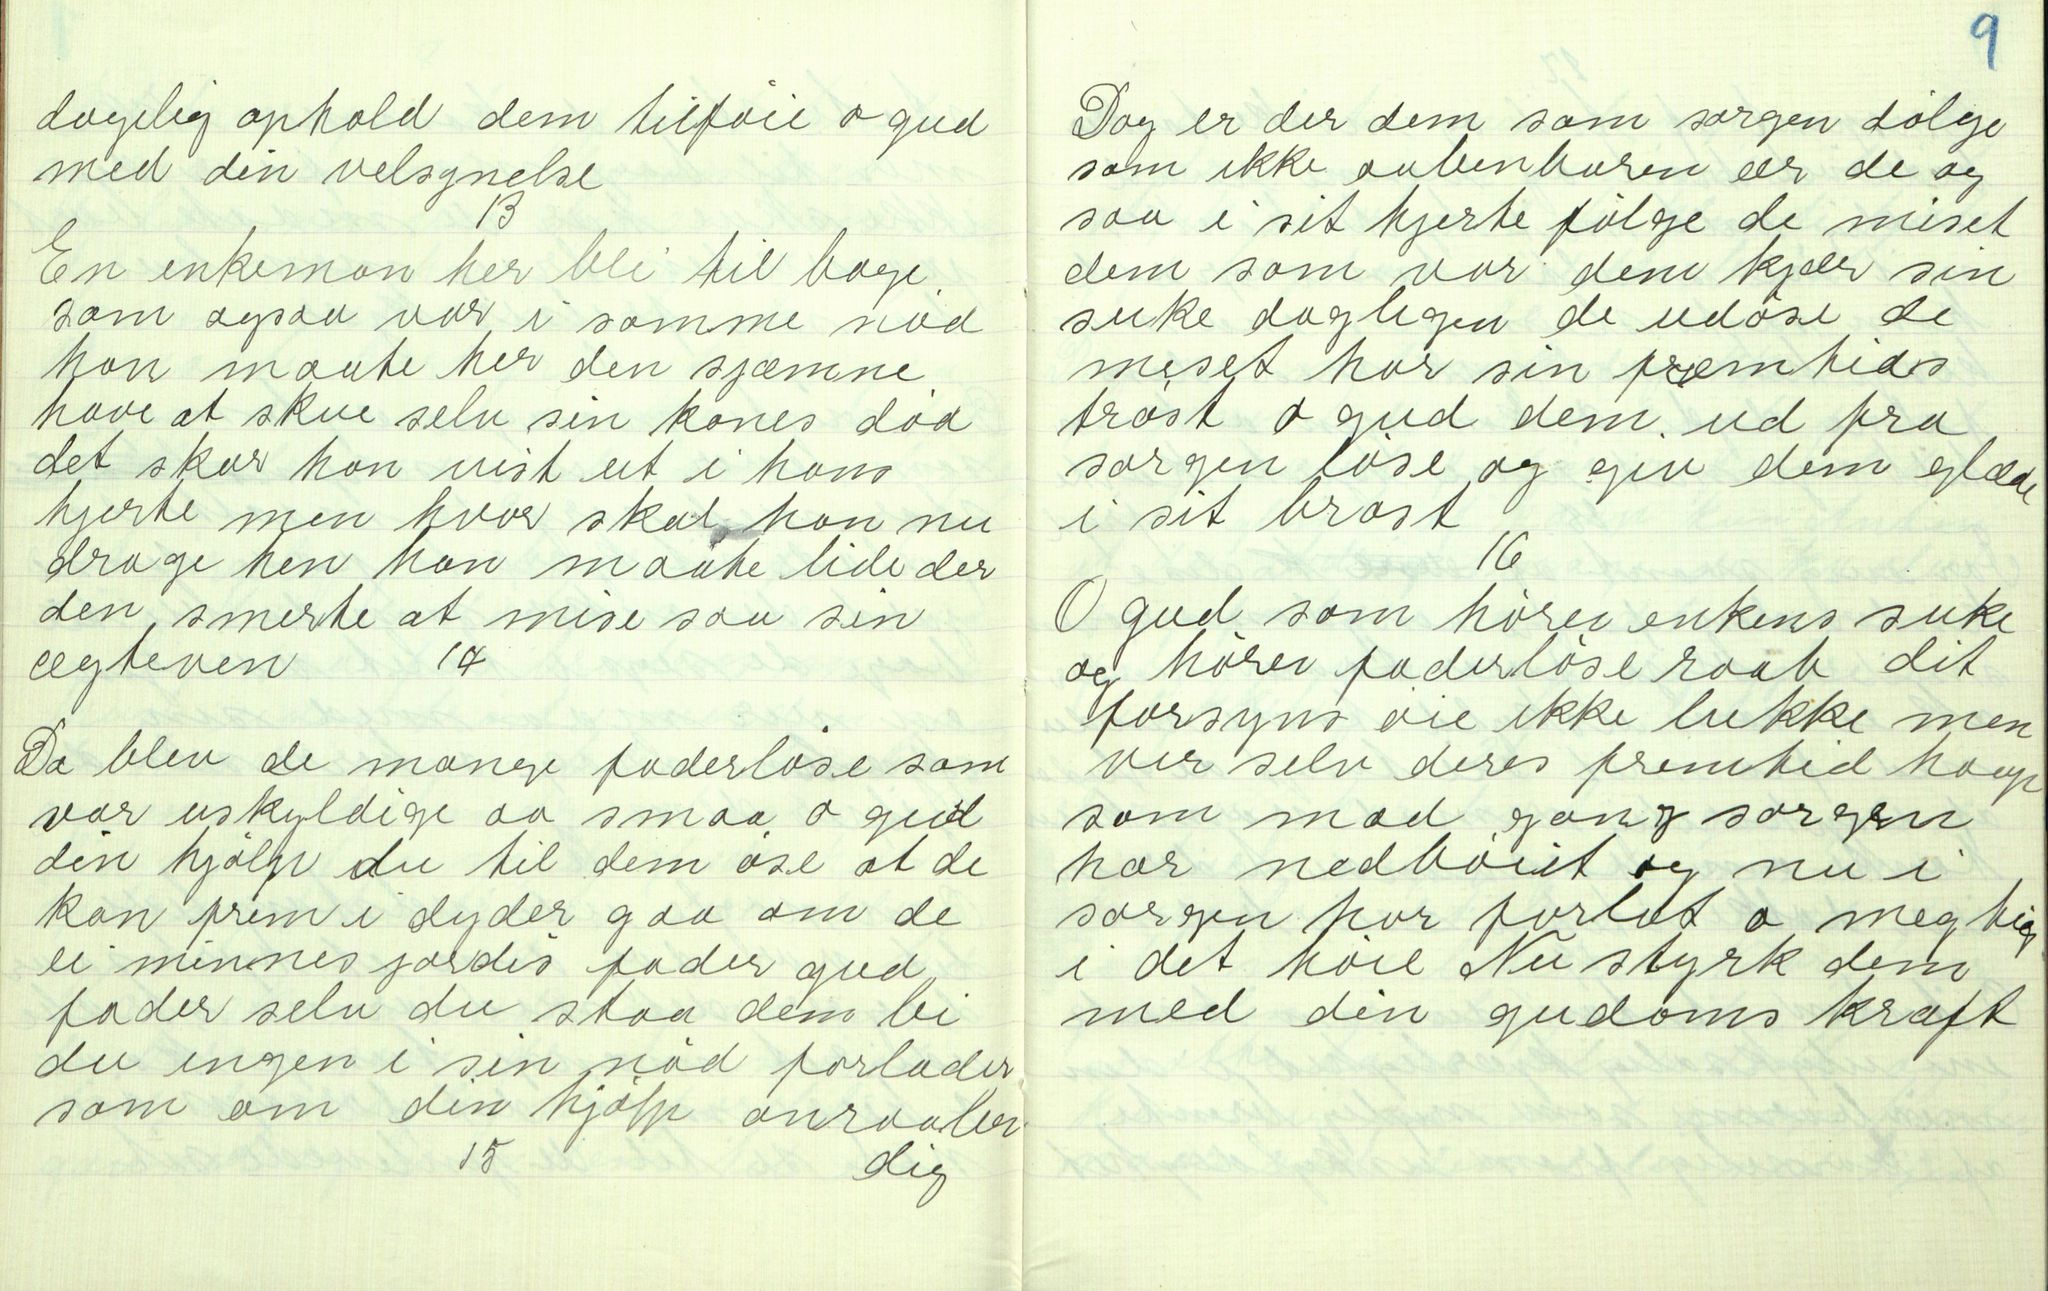 dagelig ophold dem tilföie o gud
med din velsgnelse
13
En enkeman her bli til bage
som ogsaa var i samme nöd
han maate her den sjæmne
have at skue selv sin kones död
det skar han vist ut i hans
hjerte men hvor skal han nu
drage hen han maate lide der
den smerte at mise saa sin
ægteven
14
Da blev de mange faderlöse som
var uskyldige aa smaa o gud
din hjölp du til dem öse at de
kan frem i dyder gaa om de
ei minnes jordis fader gud
fader selv du staa dem bi
du ingen i sin nöd forlader
som om din hjölp anraaber
dig
15
9
Dog er der dem som sorgen dölge
som ikke aabenbaren ær de og
saa i sit hjerte fölge de miset
dem som var dem kjær sin
suke dagligen de udöse de
miset har sin fremtids
tröst o gud dem ud fra
sorgen löse og giv dem glæde
i sit bröst
16
O gud som hörer enkens suke
og hörer faderlöse raab dit
forsyns öie ikke lukke men
ver selv deres fremtid haap
som mod gang sorgen
har nedböiet og nu i
sorgen har forlat o megtig
i det höie Nu styrk dem
med din gudoms kraft